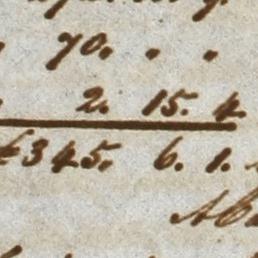 70. . .
2. 15. 4
£345. 6. 1.